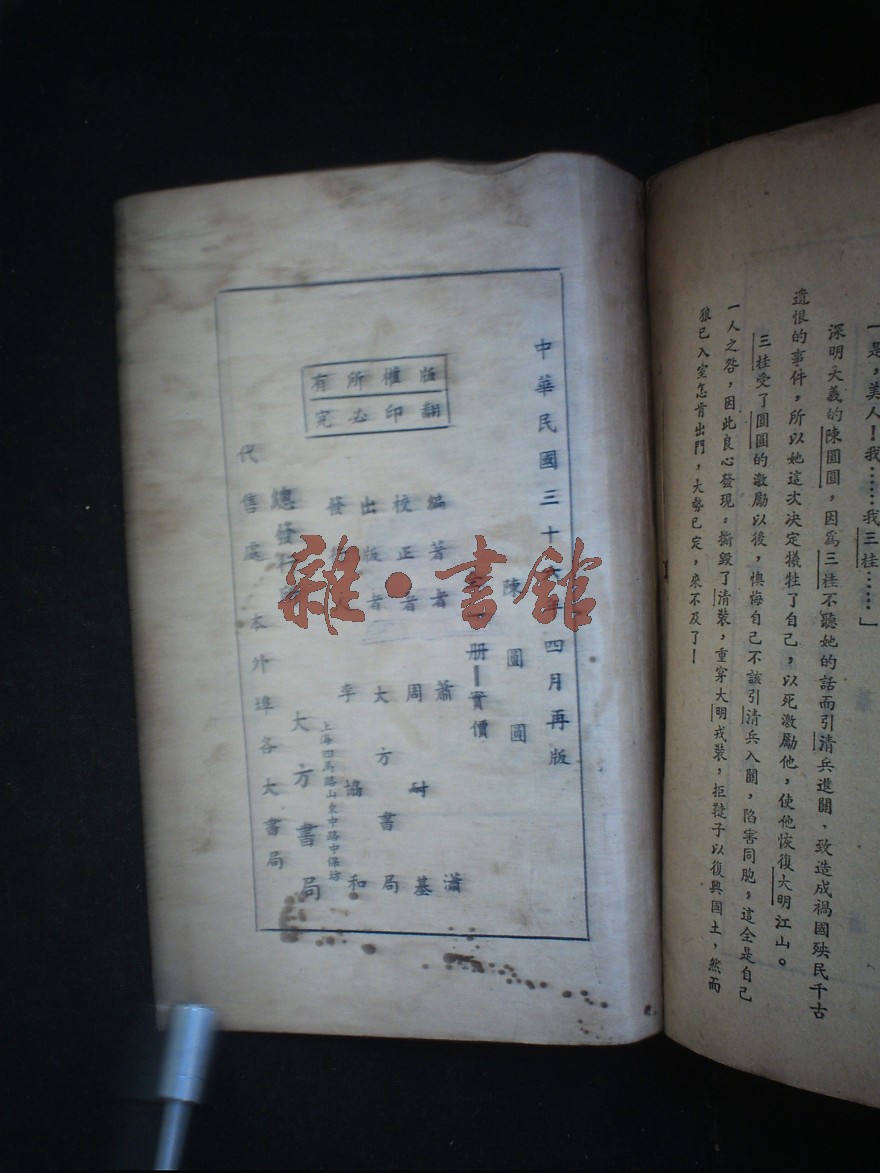 一是，美人！我……我三桂……」
深明大義的陳圓圓，因爲三桂不聽她的話而引清兵進關，致造成禍國殃民千古
遺恨的事件，所以她這次決定犧牲了自己，以死激勵他，使他恢復大明江山。
三桂受了圓圓的激勵以後，懊悔自己不該引清兵入關，陷害同胞，這全是自己
一人之咎，因此良心發現，撕毀了清裝，重穿大明戎裝，拒韃子以復興國土，然而
狼已入室怎肯出門，大勢已定，來不及了！
中華民國三十六年四月再版
陳圓圓
冊實價
編著者 蕭瀟
校正者 周耐基
出版者 大方書局
發行 李協和
上海四馬路山東中路中保坊
總發行 大方書局
代售處 本外埠各大書局
版權所有
翻印必究
雜·書館